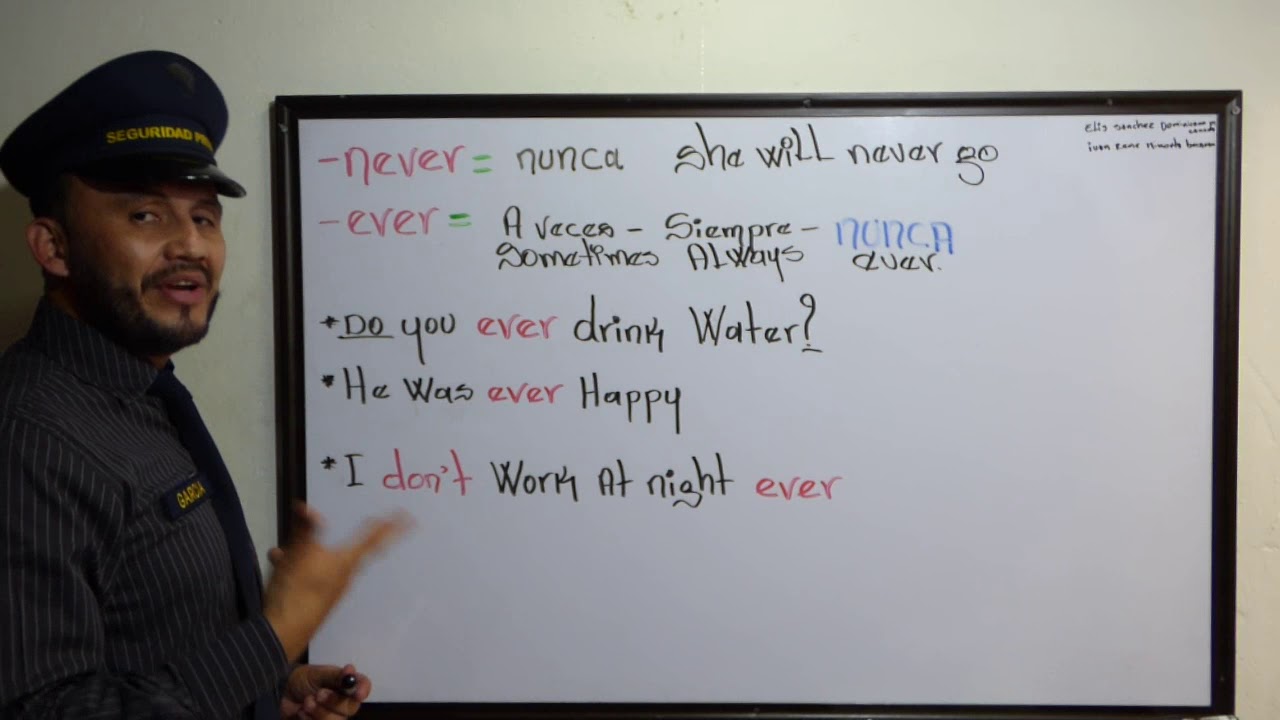 SEGURIDAD
GARCIA
-never = nunca She will never go
-ever = A veces - Siempre - NUNCA
Sometimes Always ever.
*DO you ever drink Water?
*He Was ever Happy
*I don't Work At night ever
Elis Sanchez Dominicana